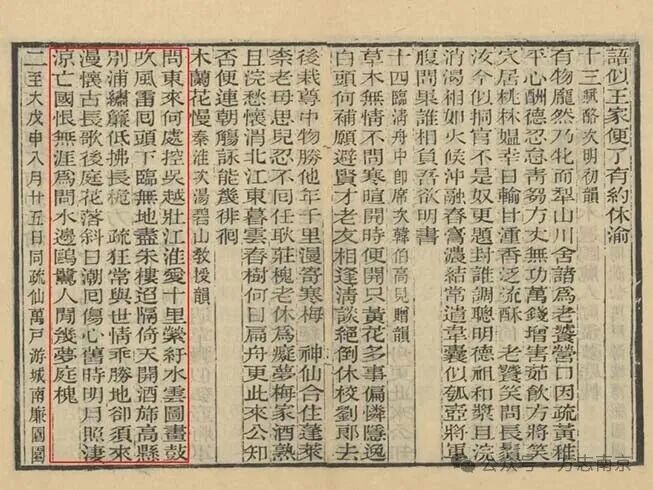 語似王家便了有約休渝
十三飄酪次明初韻
有物龐然乃牝而犁山川舍諸為老饕營口因疏黃雅
平心酬德忍㤀害芻方丈無功萬錢增害茹飲方將笑
穴居桃林媼幸日輸甘湩香泛流酥 老饕笑問長鬚
汝今似桐官不是奴更題封誰調聰明德祖和漿且浣
消渴相如火候沖融春濃結常遣韋囊似瓠壺將軍
腹問果誰相負吾欲明書
十四臨濤舟中即席次韓伯高見贈韻
草木無情不問寒暄開時便開只黃花多事偏憐隱逸
白頭何補願避賢才老友相逢清談絕倒休校劉郎去
後栽尊中物勝他年千里漫寄寒梅 神仙合住蓬萊
柰老母思兒忍不回任耿莊槐老休為癡夢梅家酒熟
且浣愁懷渭北江東暮雲春樹何日扁舟更此來公知
否便連朝觴詠能幾徘徊
木蘭花慢秦淮次湯碧山教授韻
問東來何處控吳越壯江淮愛十里縈紆水雲圖畫鼓
吹風雷囘頭下臨無地盡朱樓迢隔倚天開酒旆高縣
別浦繡簾低拂長桅 疏狂常與世情乖勝地卻須來
漫懷古長歌後庭花落斜日潮囘傷心舊時明月照淒
涼亡國恨無涯為問水邊鷗鷺人間幾夢庭槐
二至大戊申八月廿五日同疏仙萬戶游城南廉園園
公众号·方志南京